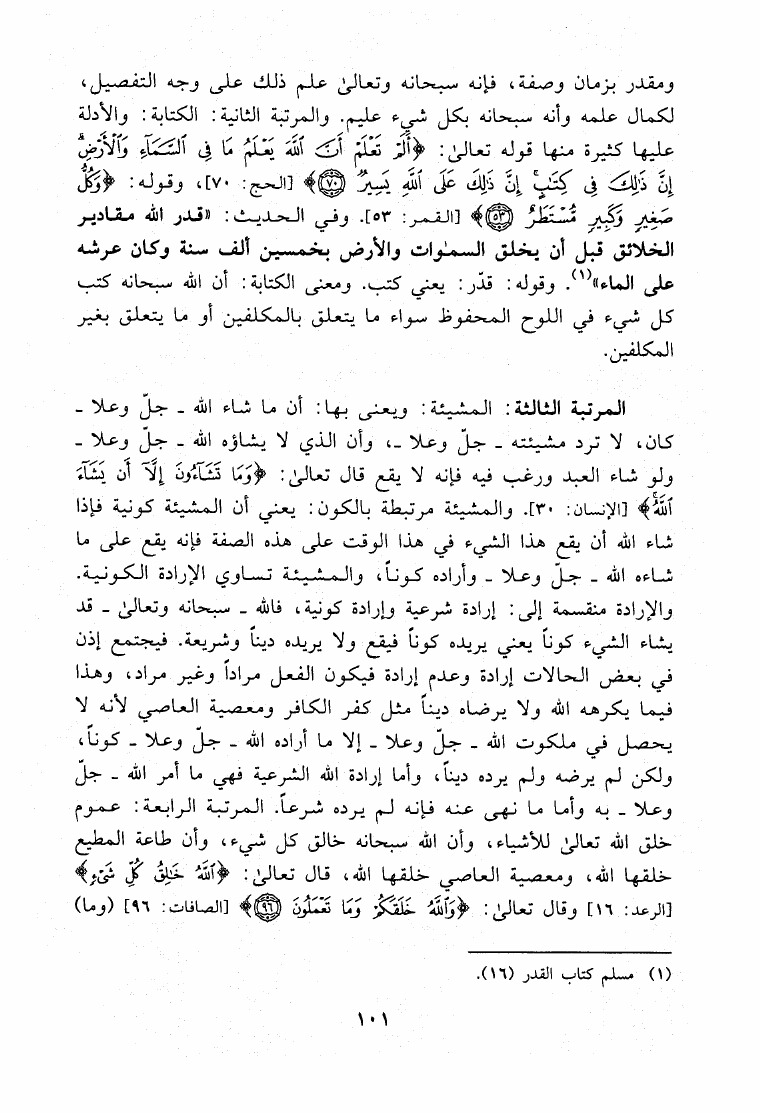 ومقدر بزمان وصفة، فإنه سبحانه وتعالىٰ علم ذلك على وجه التفصيل،
لكمال علمه وأنه سبحانه بكل شيء عليم. والمرتبة الثانية: الكتابة: والأدلة
عليها كثيرة منها قوله تعالىٰ: ﴿أَلَمْ تَعْلَمْ أَنَّ ٱللَّهَ يَعْلَمُ مَا فِي ٱلسَّمَآءِ وَٱلْأَرْضِۗ
إِنَّ ذَٰلِكَ فِي كِتَٰبٍۚ إِنَّ ذَٰلِكَ عَلَى ٱللَّهِ يَسِيرٌ ٧٠﴾ [الحج: ٧٠]، وقوله: ﴿وَكُلُّ
صَغِيرٍ وَكَبِيرٍ مُّسْتَطَرٌ ٥٣﴾ [القمر: ٥٣]. وفي الحديث: «قدر الله مقادير
الخلائق قبل أن يخلق السمٰوات والأرض بخمسين ألف سنة وكان عرشه
على الماء»(١). وقوله: قدّر: يعني كتب. ومعنى الكتابة: أن الله سبحانه كتب
كل شيء في اللوح المحفوظ سواء ما يتعلق بالمكلفين أو ما يتعلق بغير
المكلفين.
المرتبة الثالثة: المشيئة: ويعنى بها: أن ما شاء الله ـ جلّ وعلا ـ
كان، لا ترد مشيئته ـ جلّ وعلا ـ، وأن الذي لا يشاؤه الله ـ جلّ وعلا ـ
ولو شاء العبد ورغب فيه فإنه لا يقع قال تعالىٰ: ﴿وَمَا تَشَآءُونَ إِلَّآ أَن يَشَآءَ
ٱللَّهُۚ﴾ [الإنسان: ٣٠]. والمشيئة مرتبطة بالكون: يعني أن المشيئة كونية فإذا
شاء الله أن يقع هذا الشيء في هذا الوقت على هذه الصفة فإنه يقع على ما
شاءه الله ـ جلّ وعلا ـ وأراده كوناً، والمشيئة تساوي الإرادة الكونية.
والإرادة منقسمة إلى: إرادة شرعية وإرادة كونية، فالله ـ سبحانه وتعالىٰ ـ قد
يشاء الشيء كوناً يعني يريده كوناً فيقع ولا يريده ديناً وشريعة. فيجتمع إذن
في بعض الحالات إرادة وعدم إرادة فيكون الفعل مراداً وغير مراد، وهذا
فيما يكرهه الله ولا يرضاه ديناً مثل كفر الكافر ومعصية العاصي لأنه لا
يحصل في ملكوت الله ـ جلّ وعلا ـ إلا ما أراده الله ـ جلّ وعلا ـ كوناً،
ولكن لم يرضه ولم يرده ديناً، وأما إرادة الله الشرعية فهي ما أمر الله ـ جلّ
وعلا ـ به وأما ما نهى عنه فإنه لم يرده شرعاً. المرتبة الرابعة: عموم
خلق الله تعالىٰ للأشياء، وأن الله سبحانه خالق كل شيء، وأن طاعة المطيع
خلقها الله، ومعصية العاصي خلقها الله، قال تعالىٰ: ﴿ٱللَّهُ خَٰلِقُ كُلِّ شَيْءٍ﴾
[الرعد: ١٦] وقال تعالىٰ: ﴿وَٱللَّهُ خَلَقَكُمْ وَمَا تَعْمَلُونَ ٩٦﴾ [الصافات: ٩٦] (وما)
(١) مسلم كتاب القدر (١٦).
١٠١